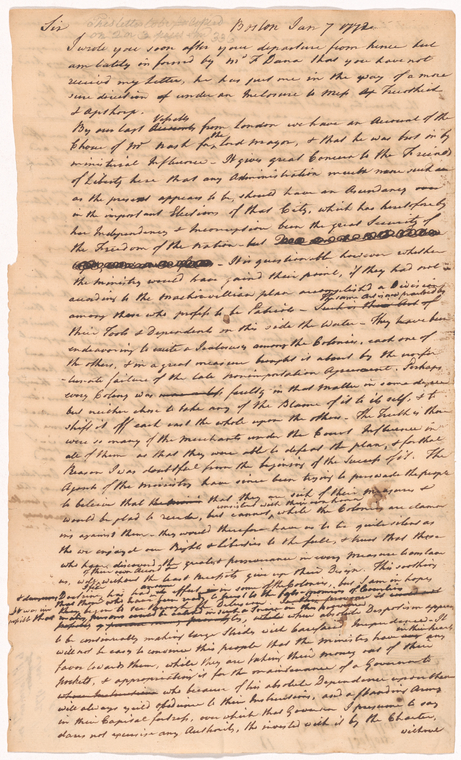 Sir Boston Jan 7 1772
I wrote you soon after your departure from hence but
am lately informed by Mr F Dana that you have not
received my letter, he has put me in the way of a more
sure direction of under an Inclosure to Mess
& Apthorp.
By our last Vessells from London we have an Account of the
Choice of Mr Nash for lord mayor, & that he was but in by
ministerial Influence - It gives great Concern to the Friends
of Liberty here that any Administration much more such an
as the present appears to be, should have an Ascendancy over
in the important Elections of that City, which has heretofore by
her Independency & Incorruption been the great Security of
the Freedom of the Nation - but
It is questionable however whether
the Ministry would have gaind their point, if they had not
according to the Machiavellian plan accomplished a Division
among those who profess to be Patriots - The same Art is practiced by
their Tools & Dependents on this side the Water - They have been
endeavoring to excite a Jealousy among the Colonies, each one of
the others, & in a great measure brought it about by the unfor
tunate failure of the late nonimportation Agreement. Perhaps
every Colony was faulty in that Matter in some degree
but neither chose to take any of the Blame of it to itself, & to
shift it off each cast the whole upon the other. The Truth is there
were so many of the Merchants under the Court Influence in
all of them as that they were able to defeat the plan, & for that
Reason I was doubtful from the beginning of the Success of it. The
Agents of the Ministry have since been trying to persuade the people
to believe that they are sick of their measures &
would be glad to recede, but cannot, consistent with their own honor while the Colonies are clamor
ing against them - they would therefore have us to be quite silent as
tho we enjoyed our Rights & Liberties to the full, & trust that those
who have discoverd the greatest perseverance in every Measure to enslave
us, will of their own Accord & without the least Request give up their Design. This soothing
had its effect in some of the Colonies, but I am in hopes
Disposition appears
to be considerably making large Strides with Independence. It
will not be easy to convince this people that the Ministers have in their hearts, any
favor towards them, while they are taking their money out of their
pockets, & appropriating it for the maintenance of a Governor
who because of his absolute Dependence upon them
will always yield obedience to their Instructions, and a standing Army
in their Capital fortress, over which that Governor I presume to say
dares not exercise any Authority, tho invested with it by the Charter.
without